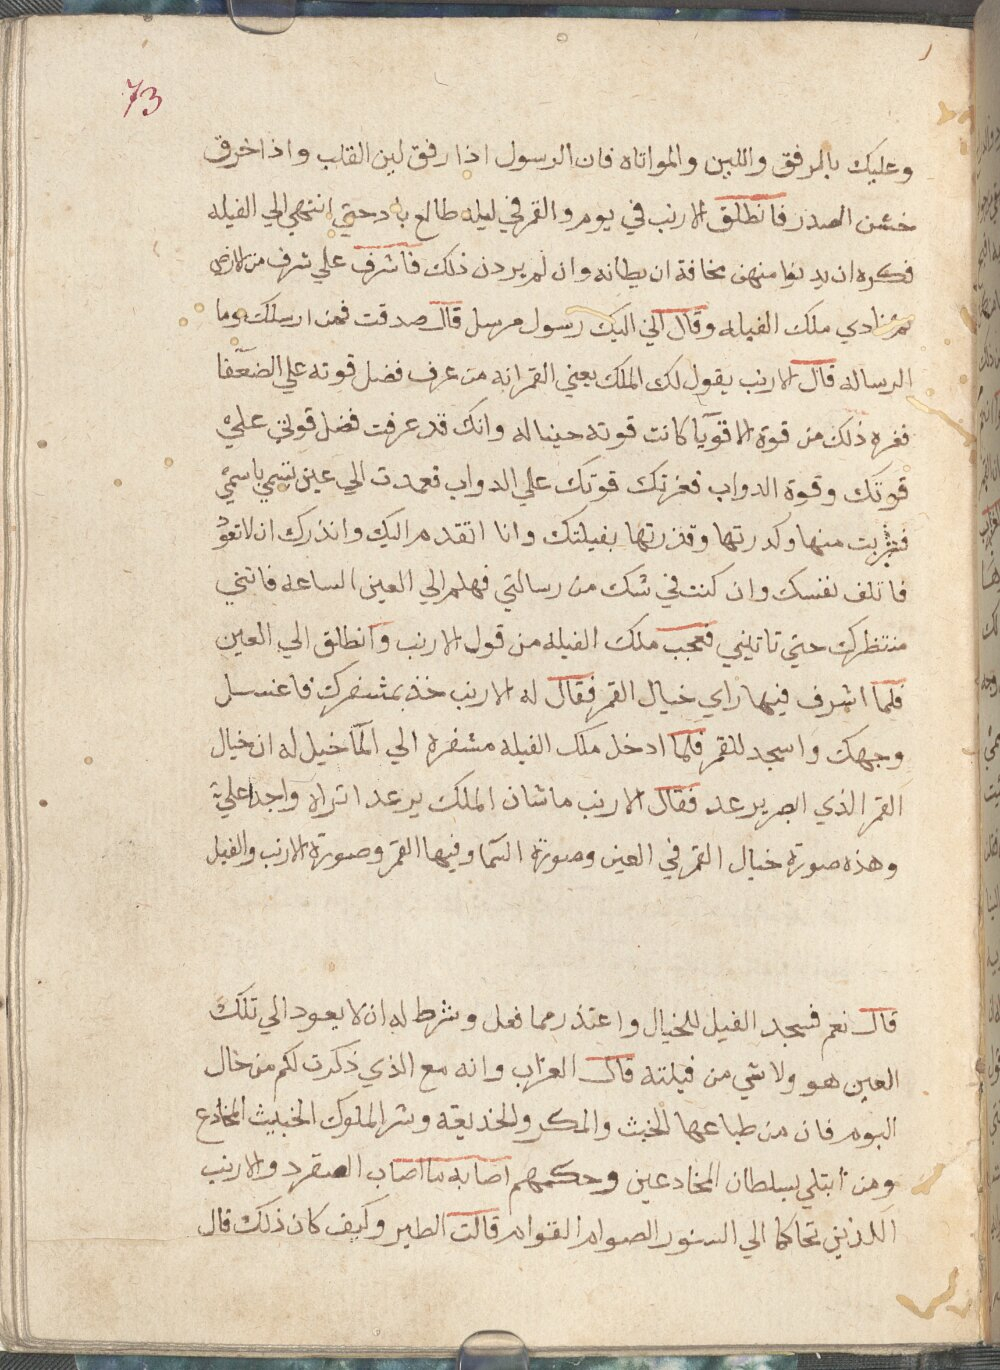 73
وعليك بالرفق واللين والمواتاه فان الرسول اذا رفق لين القلب واذا خرق
خشن الصدر فانطلق الارنب في يوم والقمر في ليله طالع باد حتي انتهي الي الفيله
فكره ان يدنوا منهن مخافة ان يطانه وان لم يردن ذلك فاشرف علي شرف من الارض
ثم نادي ملك الفيله وقال اني اليك رسول مرسل قال صدقت فمن ارسلك وما
الرساله قال الارنب يقول لك الملك يعني القمر انه من عرف فضل قوته علي الضعفا
فغره ذلك من قوة الاقويا كانت قوته حينا له وانك قد عرفت فضل قوتي علي
قوتك وقوة الدواب فغرتك قوتك علي الدواب فعمدت الي عين تسمي باسمي
فشربت منها وكدرتها وقذرتها بفيلتك وانا اتقدم اليك وانذرك ان لا تعود
فاتلف نفسك وان كنت في شك من رسالتي فهلم الي العين الساعه فانني
منتظرك حتي تاتيني فعجب ملك الفيله من قول الارنب وانطلق الي العين
فلما اشرف فيها راي خيال القمر فقال له الارنب خذ بمشفرك فاغسل
وجهك واسجد للقمر فلما ادخل ملك الفيله مشفره الي الما خيل له ان خيال
القمر الذي ابصر يرعد فقال الارنب ما شان الملك يرعد اتراه واجدا علي
وهذه صورة خيال القمر في العين وصورة السما وفيها القمر وصورة الارنب والفيل
قال نعم فسجد الفيل للخيال واعتذر مما فعل وشرط له ان لا يعود الي تلك
العين هو ولا شي من فيلته قال الغراب وانه مع الذي ذكرت لكم من خال
البوم فان من طباعها الخبث والمكر والخديعة وشر الملوك الخبيث المخادع
ومن ابتلي بسلطان المخادعين وحكمهم اصابه ما اصاب الصقرد والارنب
اللذين تحاكما الي السنور الصوام القوام قالت الطير وكيف كان ذلك قال